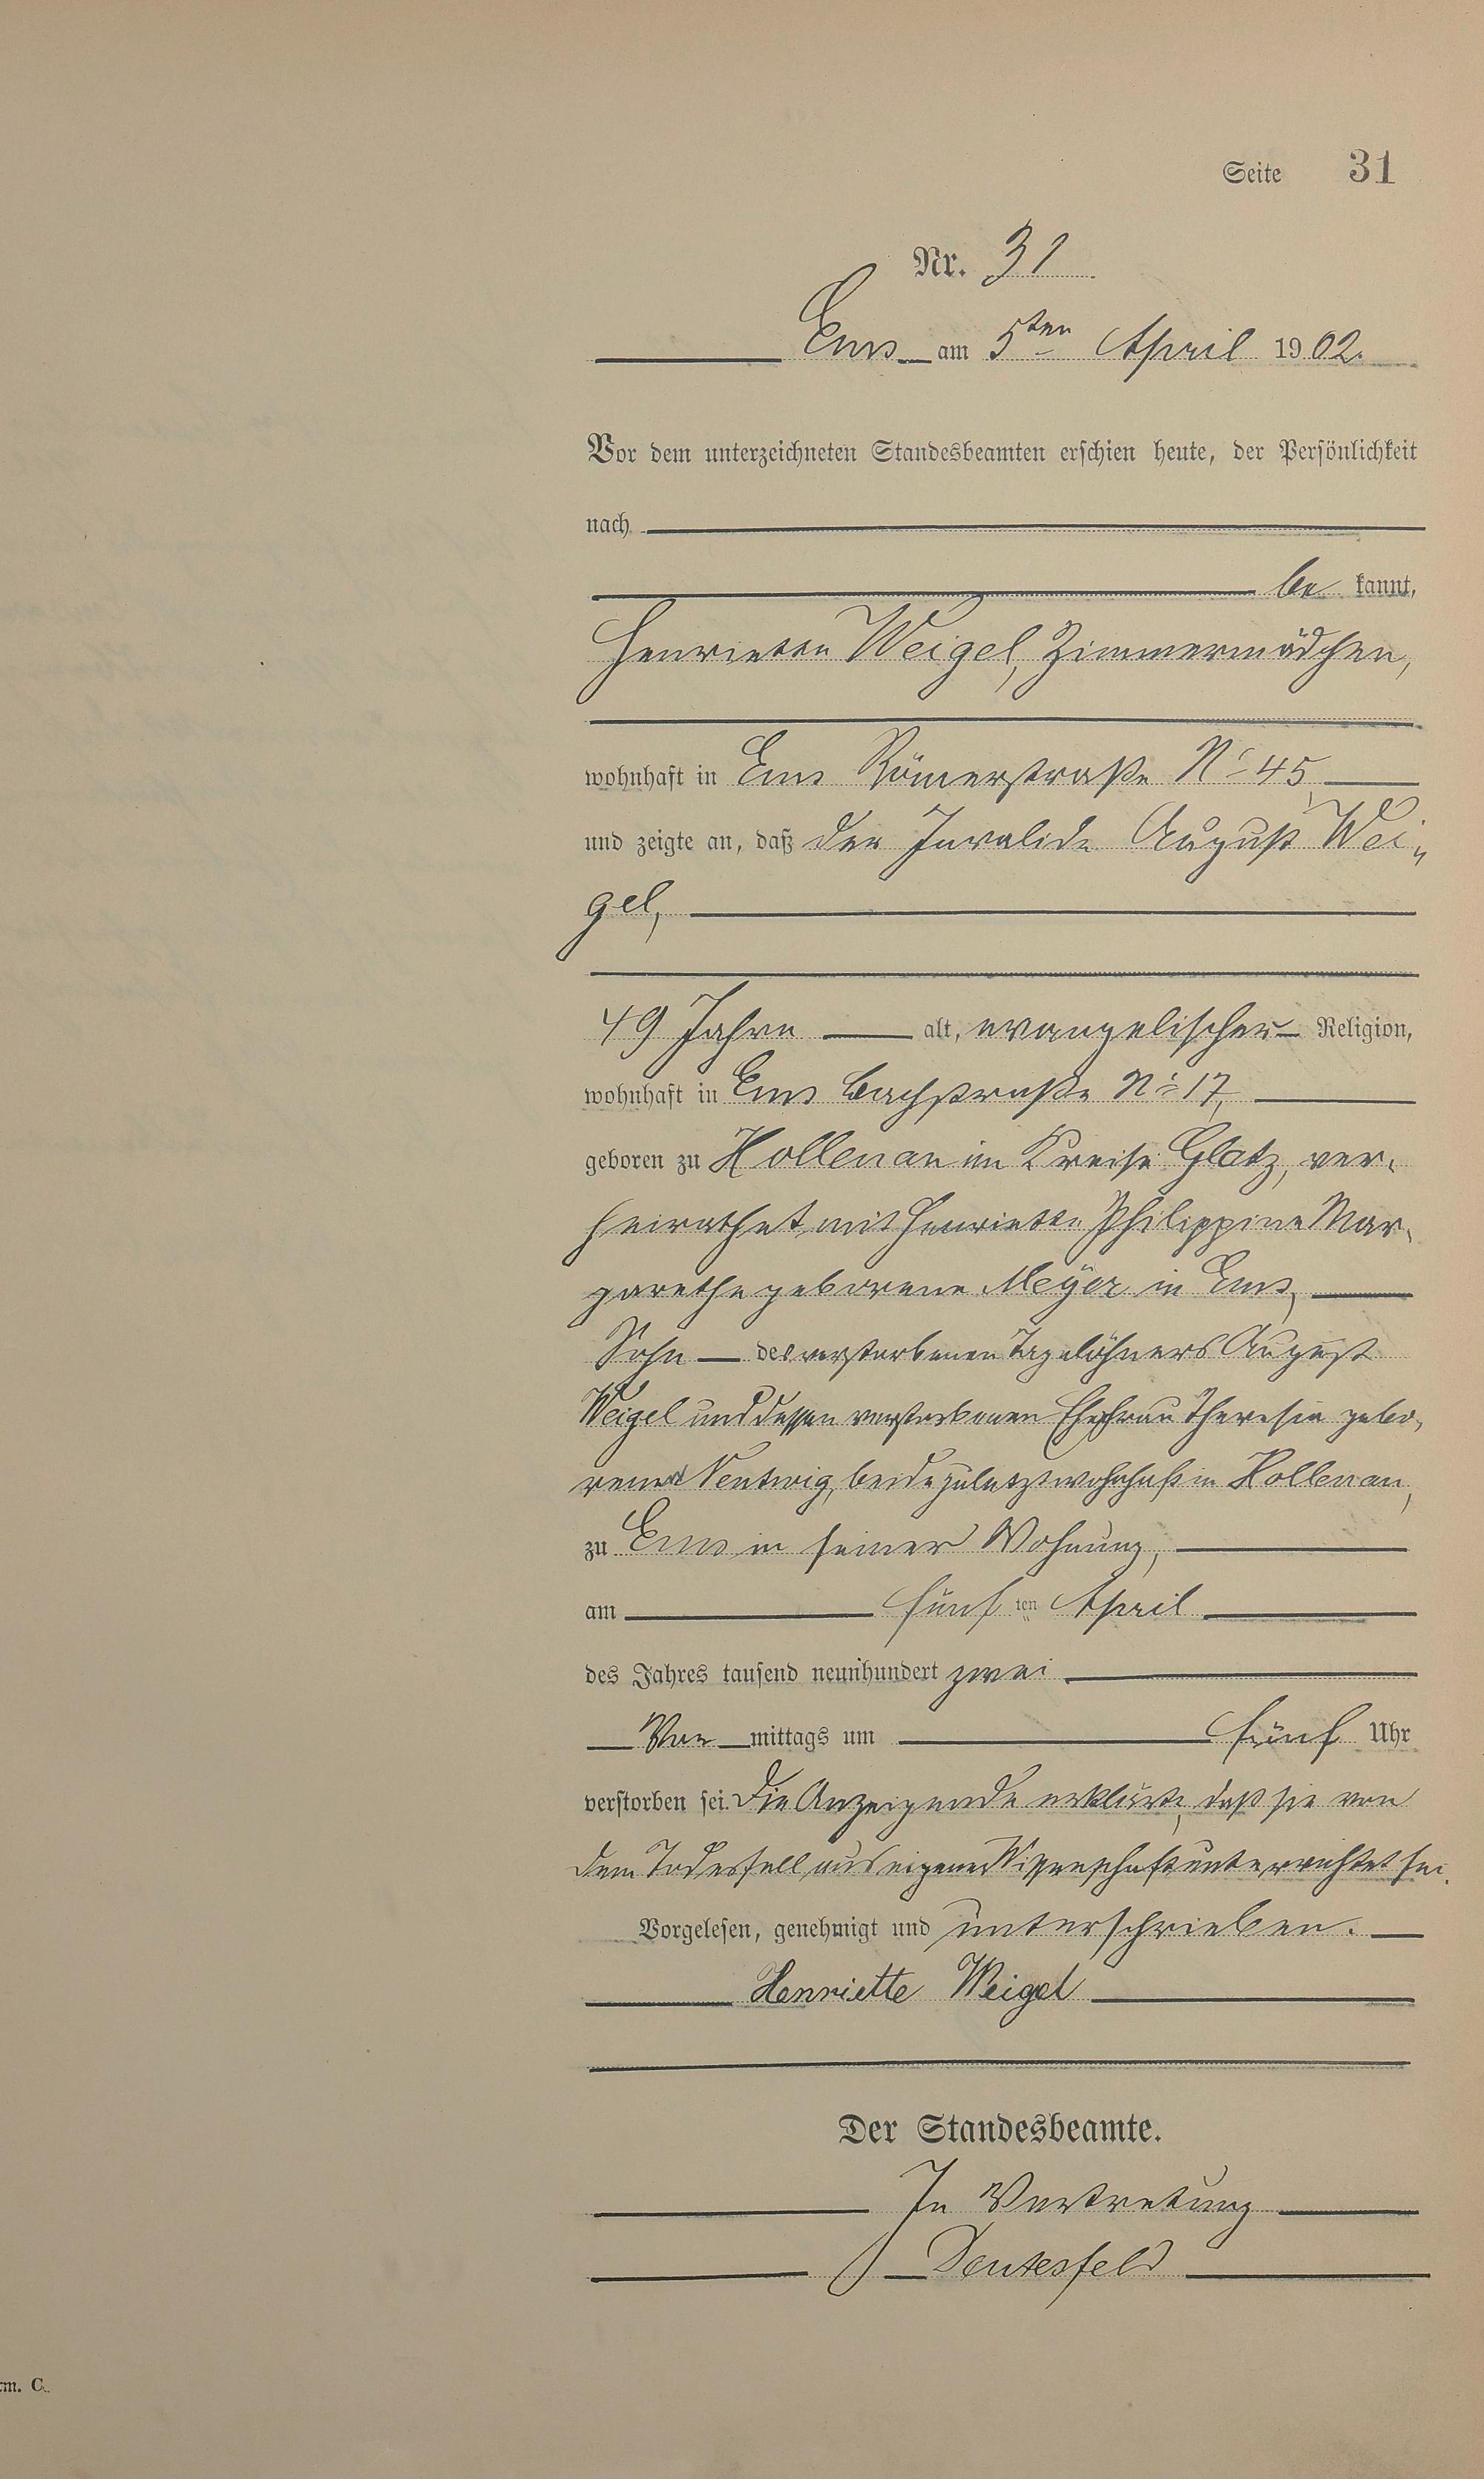 Seite 31
Nr. 31
Ems am 5ten April 1902.
Vor dem unterzeichneten Standesbeamten erschien heute, der Persönlichkeit
nach
be kannt,
Henriette Weigel, Zimmermädchen,
wohnhaft in Ems Römerstraße No 45
und zeigte an, daß der Invalide August Wei-
gel,
49 Jahre alt, evangelischer Religion,
wohnhaft in Ems Bachstraße No 17,
geboren zu Kollenau im Kreise Glatz, ver-
heirathet mit Henriette Philippine Mar-
garethe geborene Meyer in Ems,
Sohn des verstorbenen Tagelöhners August
Weigel und dessen verstorbenen Ehefrau Theresia gebo-
rener Nentwig, beide zuletzt wohnhaft in Kollenau,
zu Ems in seiner Wohnung,
am fünf ten April
des Jahres tausend neunhundert zwei
Vor mittags um fünf Uhr
verstorben sei. Die Anzeigende erklärte, daß sie von
dem Todesfall aus eigener Wissenschaft unterrichtet sei.
Vorgelesen, genehmigt und unterschrieben.
Henriette Weigel
Der Standesbeamte.
In Vertretung
rm. C.